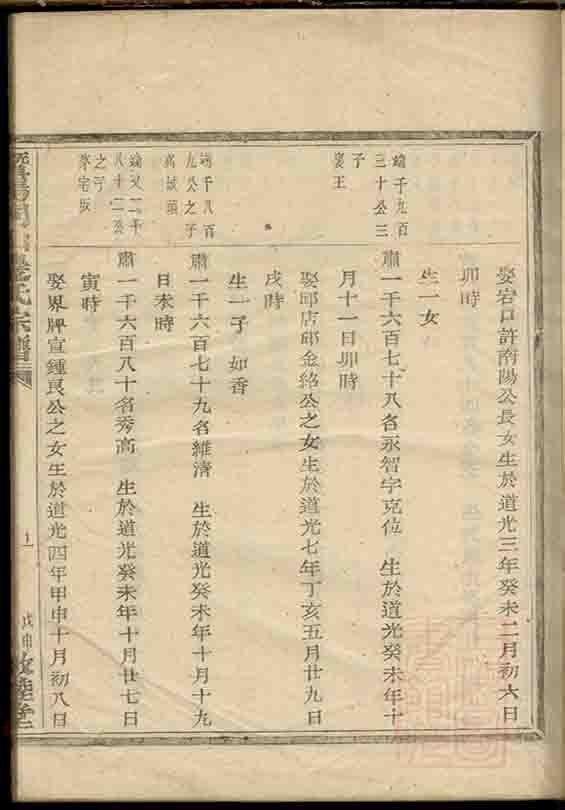 娶岩口許南陽公長女生於道光三年癸未二月初六日
卯時
生一女
端千九百
三十公三
子
裏王
肅一千六百七十八名永智字克位 生於道光癸未年十
月十一日卯時
娶邱店邱金絡公之女生於道光七年丁亥五月廿九日
戌時
生一子 如香
端千八百
九公之子
高城頭
肅一千六百七十九名維清 生於道光癸未年十月十九
日未時
端又一千
八十二公
之子
茅宅坂
肅一千六百八十名秀高 生於道光癸未年十月廿七日
寅時
娶界牌宣鍾良公之女生於道光四年甲申十月初八日
氏宗譜
戊申 敦睦堂